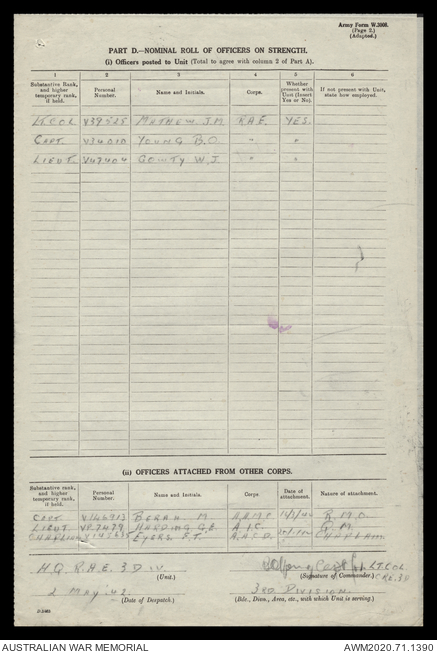 Army Form W.3008.
(Page 2.)
(Adapted.)
PART D.—NOMINAL ROLL OF OFFICERS ON STRENGTH.
(i) Officers posted to Unit (Total to agree with column 2 of Part A).
1 2 3 4 5 6
Substantive Rank, and higher temporary rank, if held. Personal Number. Name and Initials. Corps. Whether present with Unit (Insert Yes or No). If not present with Unit, state how employed.
LT. COL V39525 MATHEW J.M. RAE. YES.
CAPT. V34010 YOUNG B.O. " "
LIEUT. V47404 GOWTY W.J. " "
(ii) OFFICERS ATTACHED FROM OTHER CORPS.
Substantive rank, and higher temporary rank, if held. Personal Number. Name and Initials. Corps. Date of attachment. Nature of attachment.
CAPT. V146913 BERAH M A.A.M.C. R.M.O.
LIEUT. VP7479 HARDING G.E. A.I.C. Q.M.
CHAPLAIN EYERS F.T. A.A.C.D. CHAPLAIN
H.Q. R.A.E. 3 DIV. LT. COL
(Unit.) (Signature of Commander.) RE. 3D
2 MAY '42 3RD DIVISION
(Date of Despatch) (Bde., Divn., Area, etc., with which Unit is serving.)
AUSTRALIAN WAR MEMORIAL AWM2020.71.1390